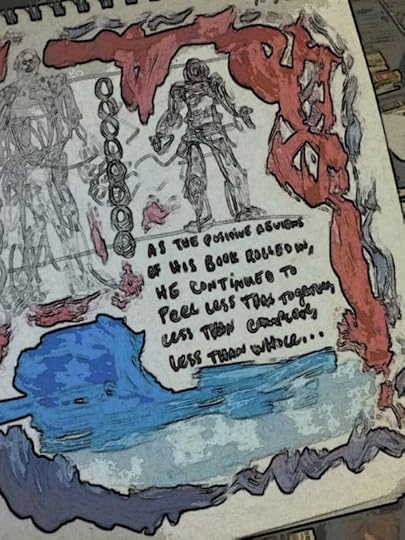 AS THE POSITIVE REVIEWS
OF HIS BOOK ROLLED IN,
HE CONTINUED TO
FEEL LESS THAN TOGETHER,
LESS THAN COMPLETE,
LESS THAN WHOLE...